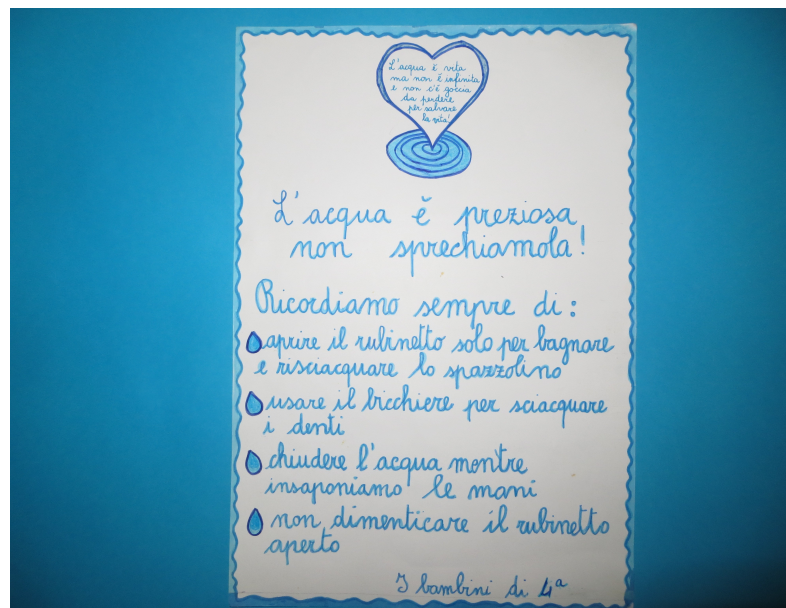 L'acqua è vita
ma non è infinita
e non c'è goccia
da perdere
per salvare
la vita!
L'acqua è preziosa
non sprechiamola!
Ricordiamo sempre di:
aprire il rubinetto solo per bagnare
e risciacquare lo spazzolino
usare il bicchiere per sciacquare
i denti
chiudere l'acqua mentre
insaponiamo le mani
non dimenticare il rubinetto
aperto
I bambini di 4ª